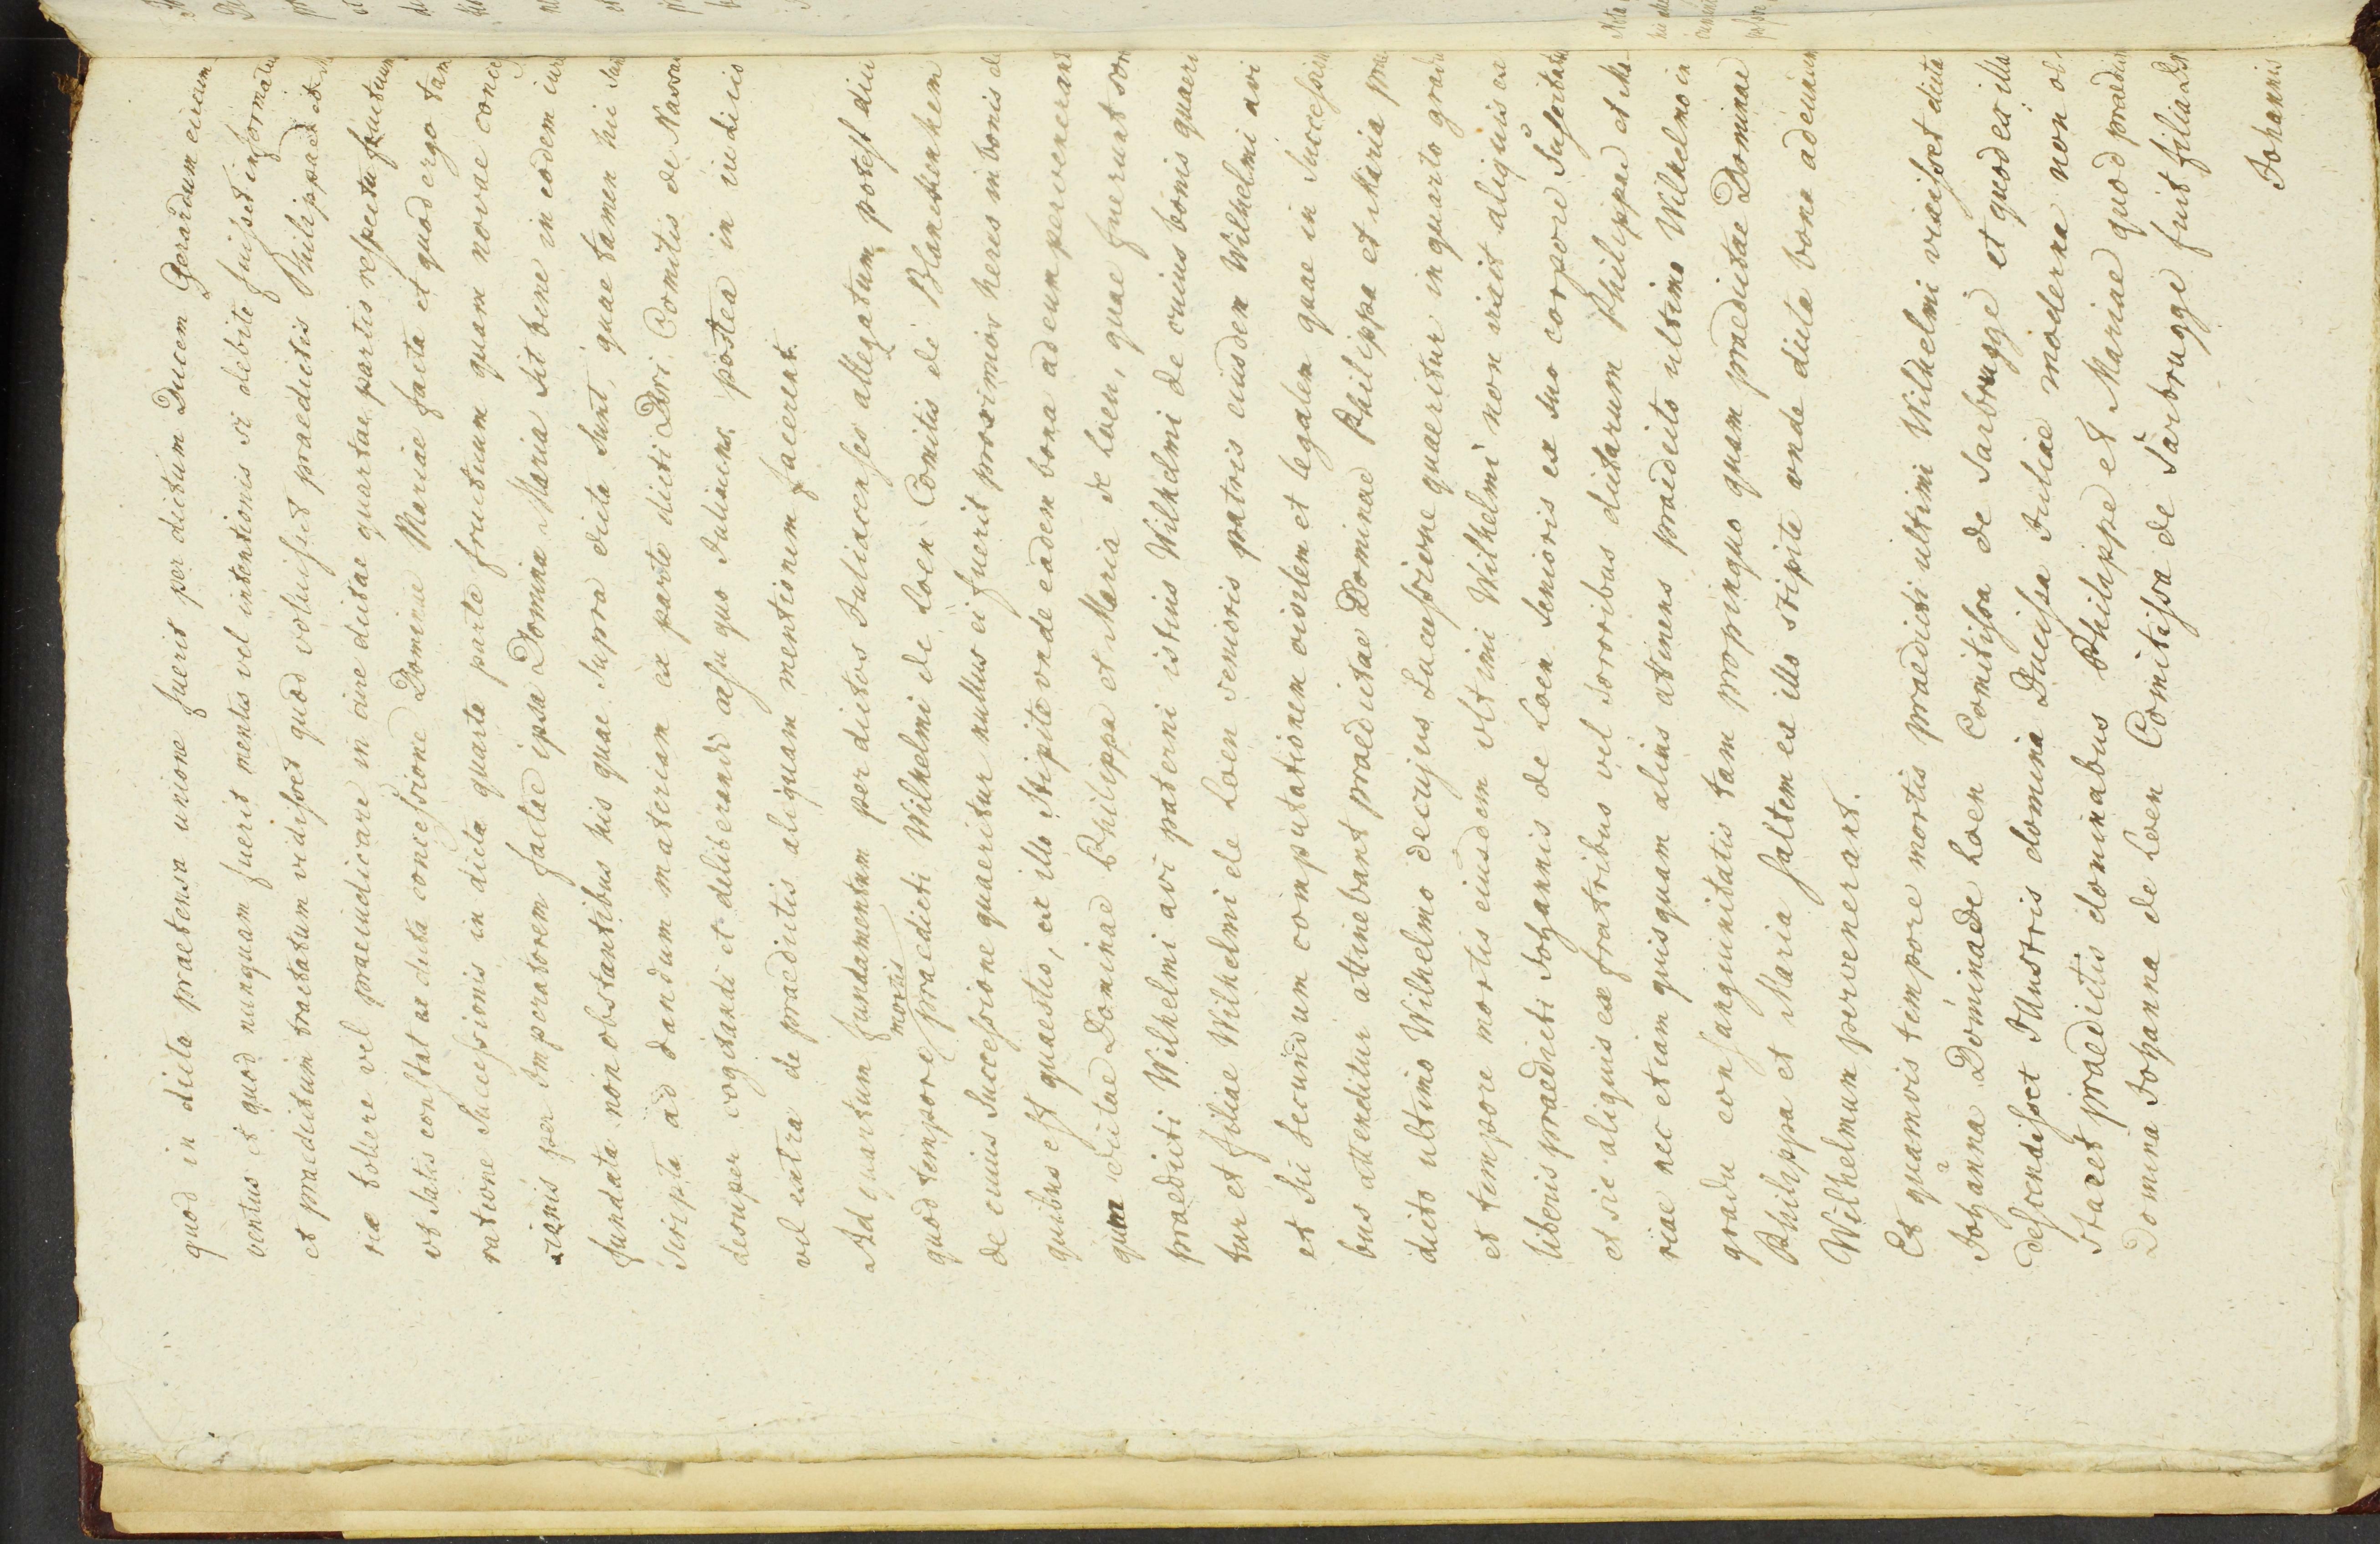 quod in dicta praetensa unione fuerit per dictum Ducem Gerardum circum
ventus et quod nunquam fuerit mentis vel intentionis si debite fuisset informatus
et praedictum tractatum vidisset quod voluisset praedictis Philippae et Ma
riae tollere vel praeiudicare in iure dictae quartae partis respectu fructuum
ut satis constat ex dicta concessione Dominae Mariae facta et quod ergo tam
ratione Successionis in dicta quarta parte fructuum quam novae conces
sionis per Imperatorem factae ipsa Domina Maria sit bene in eodem iure
fundata non obstantibus his quae supra dicta sunt, quae tamen hic sunt
scripta ad dandum materiam ex parte dicti Dni. Comitis de Nassau
desuper cogitandi et deliberandi casu quo Juliacens. postea in iudicis
vel extra de praedictis aliquam mentionem facerent.
Ad quartum fundamentum per dictos Juliacenses allegatum potest dici
quod tempore mortis praedicti Wilhelmi de Loen Comitis de Blanckenhem
de cuius Successione quaeritur nullus ei fuerit proximior heres in bonis de
quibus est quaestio, ex illo stipite unde eadem bona ad eum pervenerant
quam dictae Dominae Philippa et Maria de Loen, quae fuerunt soro
praedicti Wilhelmi avi paterni istius Wilhelmi de cuius bonis quaeri
tur et filiae Wilhelmi de Loen senioris patris eiusdem Wilhelmi avi
et sic secundum computationem civilem et legalem quae in Successioni
bus attenditur attinebant praedictae Dominae Philippa et Maria prae
dicto ultimo Wilhelmo decujus Successione quaeritur in quarto gradu
et tempore mortis eiusdem ultimi Wilhelmi non vixit aliquis ex
liberis praedicti Johannis de Loen Senioris ex suo corpore Suscitatis
et sic aliquis ex fratribus vel sororibus dictarum Philippae et Ma
riae nec etiam quisquam alius attinens praedicto ultimo Wilhelmo in
gradu consanguinitatis tam propinquo quam praedictae Dominae
Philippa et Maria saltem ex illo stipite unde dicta bona ad eundem
Wilhelmum pervenerant.
Et quamvis tempore mortis praedicti ultimi Wilhelmi vixisset dicta
Johanna Domina de Loen Comitissa de Sarbrugge et quod ex illa
descendisset Illustris domina Ducissa Juliae moderna non ob
staret praedictis dominabus Philippe et Mariae quod praedicta
Domina Johanna de Loen Comitissa de Sarbrugge fuit filia Dni
Johannis